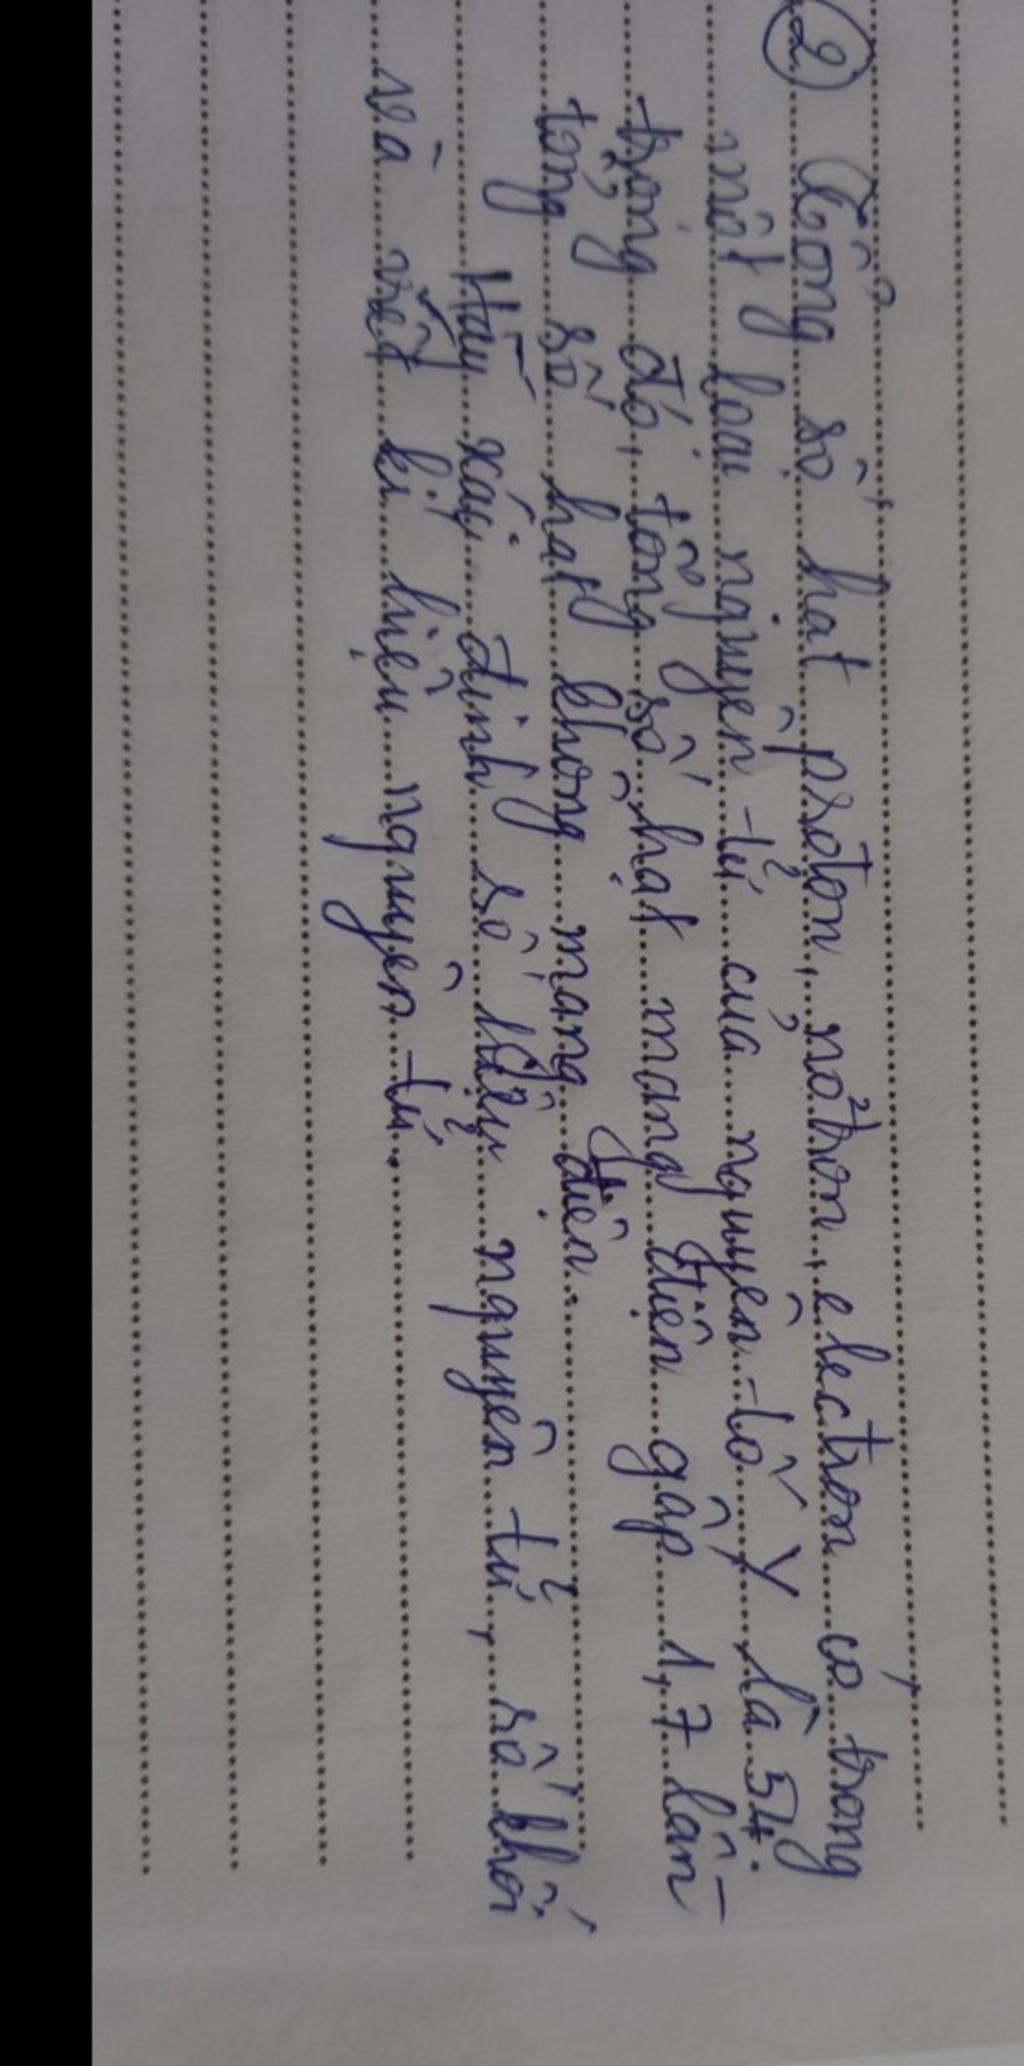 ② Tổng số hạt proton, nơtron, electron có trong
một loại nguyên tử của nguyên tố Y là 54.
trong đó, tổng số hạt mang điện gấp 1,7 lần
tổng số hạt không mang điện.
Hãy xác định số hiệu nguyên tử, số khối
và viết kí hiệu nguyên tử.